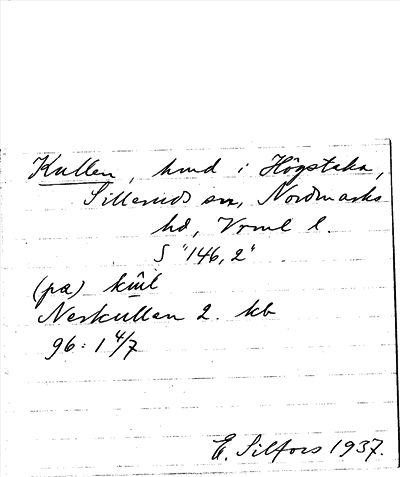 Kullen, hmd i Högstaka,
Sillerud sn, Nordmarks
hd, Vrml l.
S "146,2"
(pa)
Nerkullen 2. kb
96:1 4/7
E. Silfors 1937.